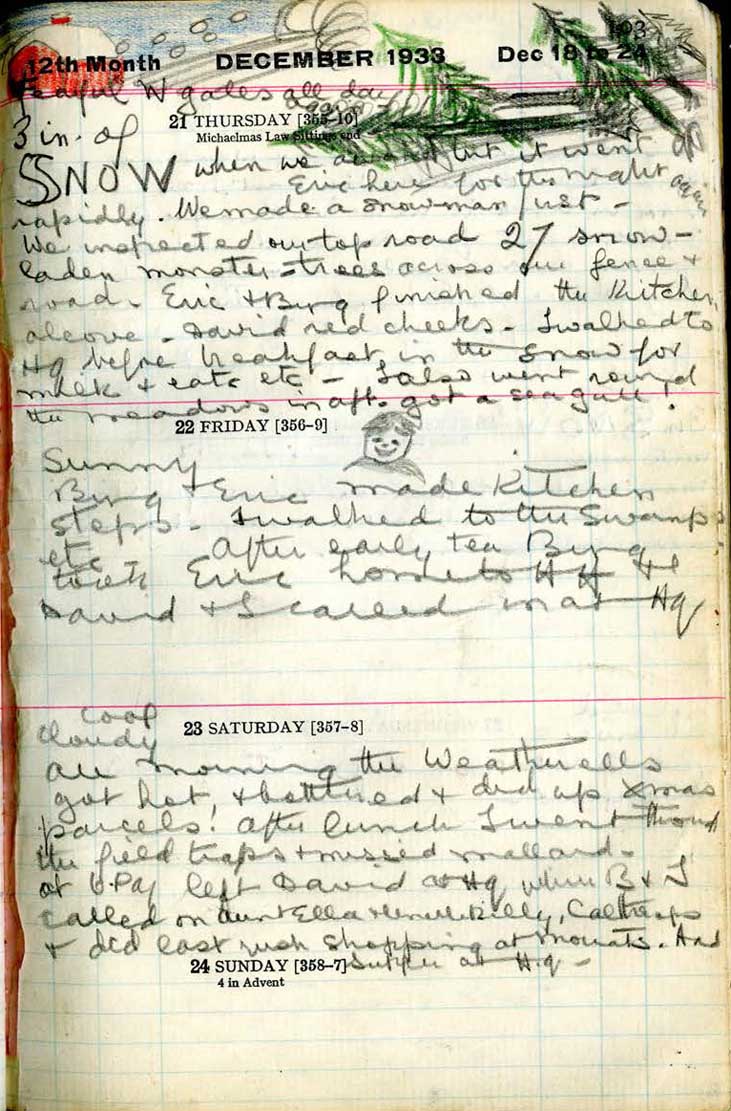 103
12th Month DECEMBER 1933 Dec 18 to 24
W gales all day
again
21 THURSDAY [355-10]
Michaelmas Law Sittings end
3 in. of
SNOW when we but it went off
Eric here for the night again
rapidly. We made a snowman just -
We inspected our top road 27 snow-
laden monster-trees across our fence +
road. Eric + Bung finished the Kitchen
alcove. David red cheeks. I walked to
Hq before breakfast in the snow for
milk + eats etc - I also went round
the meadows in aft. got a sea gull!
22 FRIDAY [356-9]
Sunny
Bung + Eric made Kitchen
steps - I walked to the Swamps
etc After early tea Bung
took Eric home to HH + I
David + I called in at Hq
23 SATURDAY [357-8]
cool
cloudy
all morning the Weatherells
got het, + bothered + did up Xmas
parcels! after lunch I went round
the field traps + missed mallard -
at left David at Hq when B + I
called on Aunt Ella + Billy, Caltheaps
+ did last rush shopping at Mouats. Had
24 SUNDAY [358-7] Supper at Hq -
4 in Advent